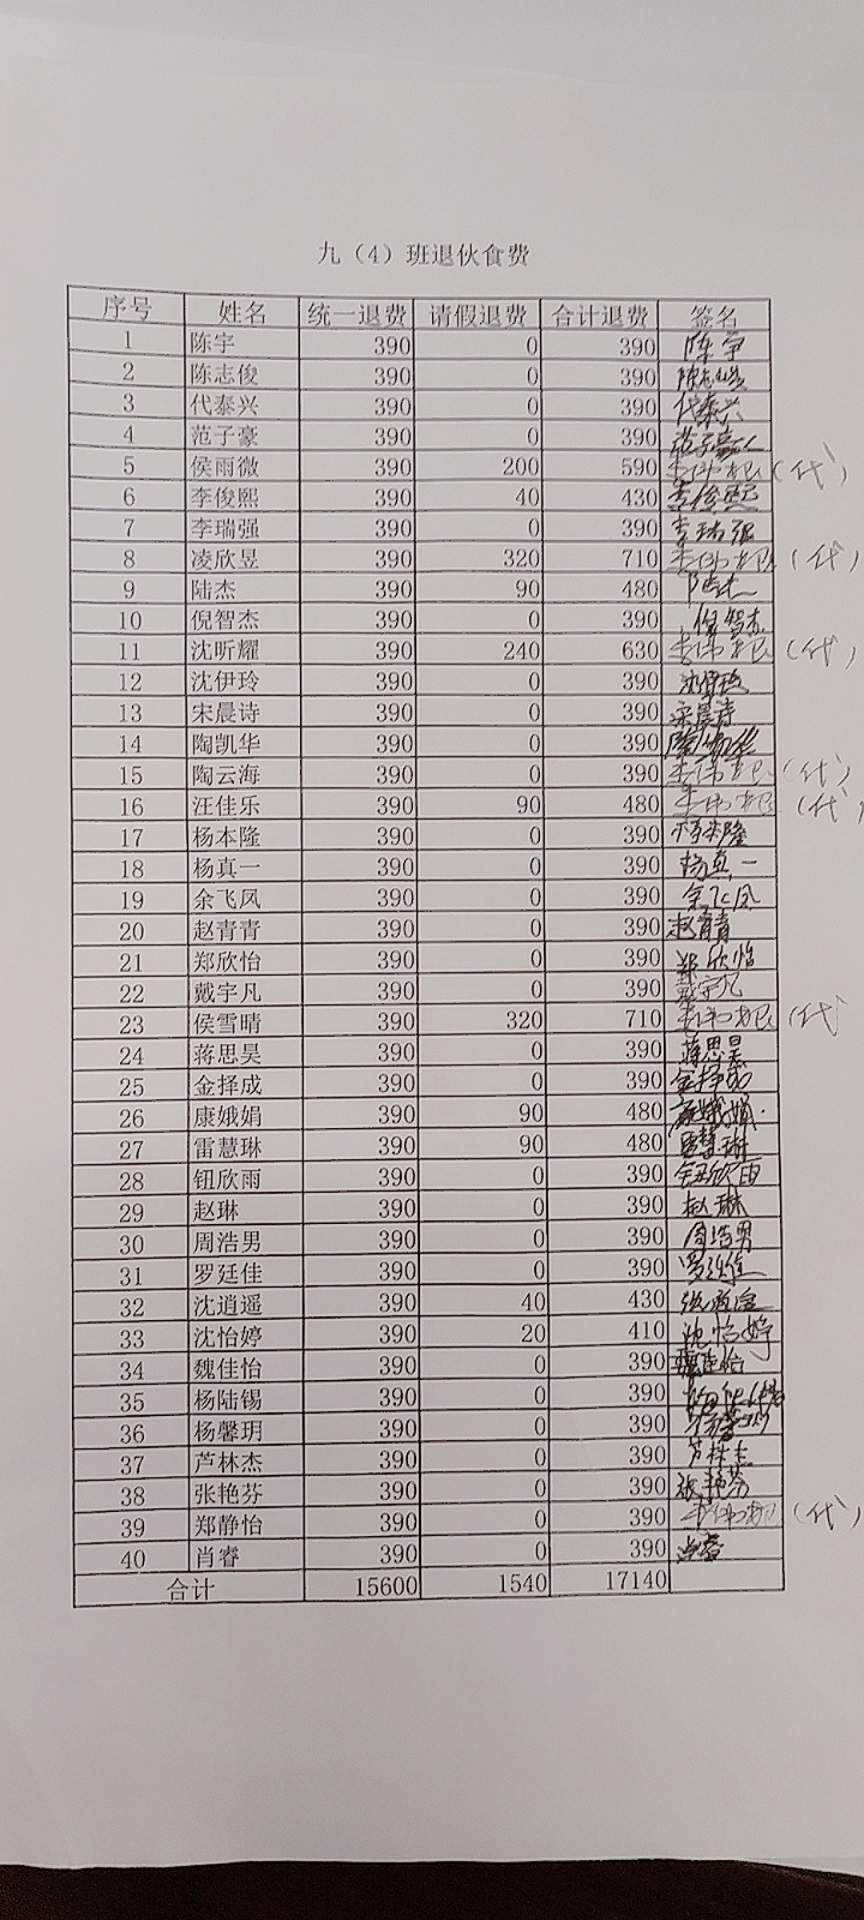 九（4）班退伙食费
序号 姓名 统一退费 请假退费 合计退费 签名
1 陈宇 390 0 390 陈宇
2 陈志俊 390 0 390 陈志俊
3 代泰兴 390 0 390 代泰兴
4 范子豪 390 0 390 范子豪
5 侯雨微 390 200 590 （代）
6 李俊熙 390 40 430 李俊熙
7 李瑞强 390 0 390 李瑞强
8 凌欣昱 390 320 710 （代）
9 陆杰 390 90 480 陆杰
10 倪智杰 390 0 390 倪智杰
11 沈昕耀 390 240 630 （代）
12 沈伊玲 390 0 390 沈伊玲
13 宋晨诗 390 0 390 宋晨诗
14 陶凯华 390 0 390 陶凯华
15 陶云海 390 0 390 （代）
16 汪佳乐 390 90 480 （代）
17 杨本隆 390 0 390 杨本隆
18 杨真一 390 0 390 杨真一
19 余飞凤 390 0 390 余飞凤
20 赵青青 390 0 390 赵青青
21 郑欣怡 390 0 390 郑欣怡
22 戴宇凡 390 0 390 戴宇凡
23 侯雪晴 390 320 710 （代
24 蒋思昊 390 0 390 蒋思昊
25 金择成 390 0 390 金择成
26 康娥娟 390 90 480 康娥娟
27 雷慧琳 390 90 480 雷慧琳
28 钮欣雨 390 0 390 钮欣雨
29 赵琳 390 0 390 赵琳
30 周浩男 390 0 390 周浩男
31 罗廷佳 390 0 390 罗廷佳
32 沈逍遥 390 40 430
33 沈怡婷 390 20 410 沈怡婷
34 魏佳怡 390 0 390 魏佳怡
35 杨陆锡 390 0 390
36 杨馨玥 390 0 390
37 芦林杰 390 0 390 芦林杰
38 张艳芬 390 0 390 张艳芬
39 郑静怡 390 0 390 （代）
40 肖睿 390 0 390 肖睿
合计 15600 1540 17140